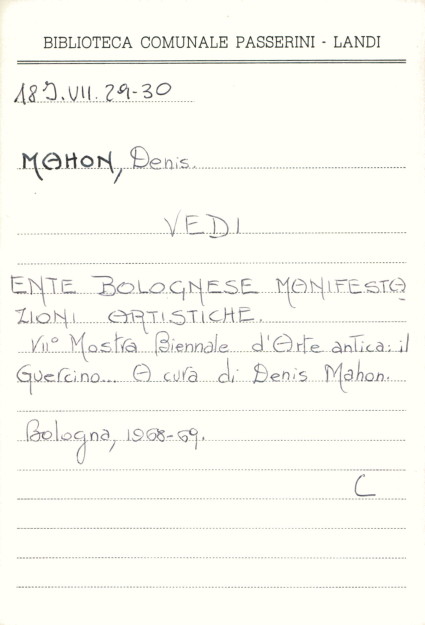 BIBLIOTECA COMUNALE PASSERINI - LANDI
18J.VII.29-30
MAHON, Denis.
VEDI
ENTE BOLOGNESE MANIFESTA
ZIONI ARTISTICHE.
VII° Mostra Biennale d'Arte antica: il
Guercino... A cura di Denis Mahon.
Bologna, 1968-69.
C